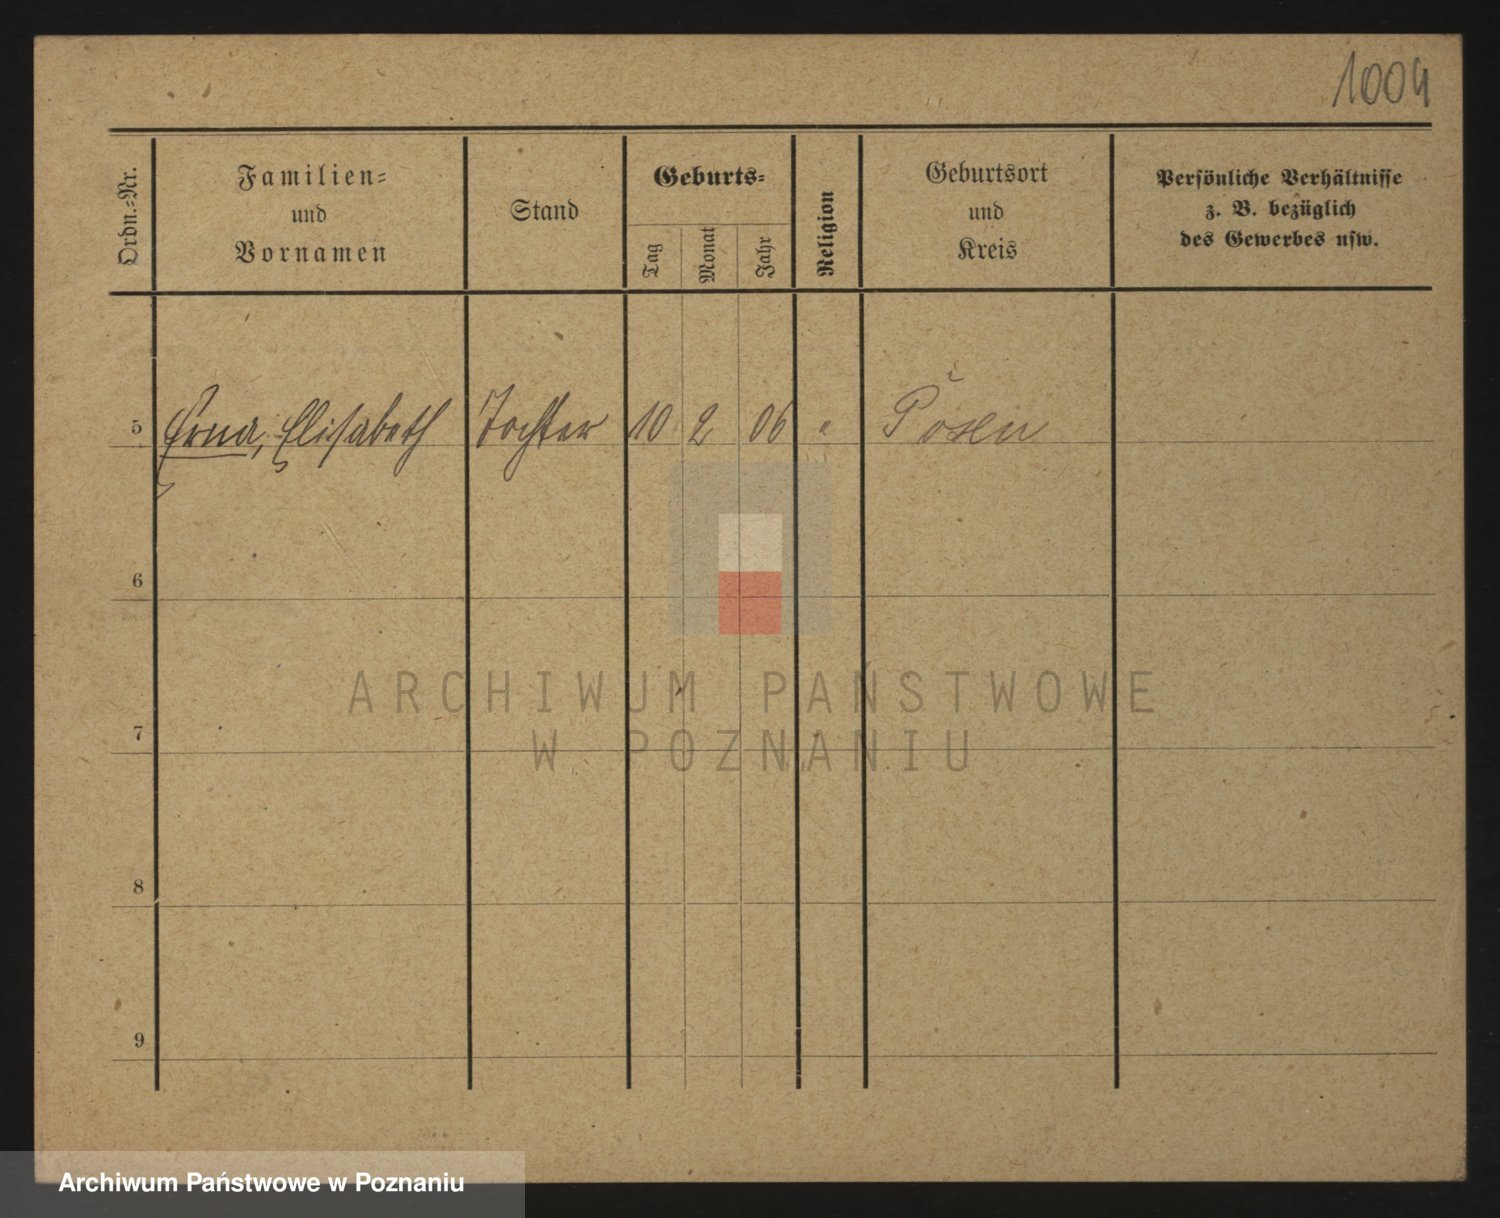 1004
Ordn.-Nr.
Familien-
und
Vornamen
Stand
Geburts-
Tag
Monat
Jahr
Religion
Geburtsort
und
Kreis
Persönliche Verhältnisse
z. B. bezüglich
des Gewerbes usw.
5 Erna, Elisabeth Tochter 10 2 06 " Posen
6
7
8
9
ARCHIWUM PAŃSTWOWE
W POZNANIU
Archiwum Państwowe w Poznaniu